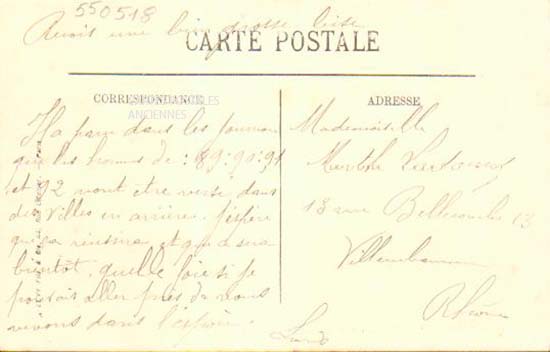 550518
Reçois une bien grosse bise
CARTE POSTALE
CORRESPONDANCE
ANCIENNES
Il a paru dans les journau
que les hommes de : 89 : 90 : 91
et 92 vont être versé dans
des villes en arrière j'espère
que ça réussira et que ça sera
bientôt. quelle joie si je
pouvais aller près de vous
vivons dans l'espoir.
ADRESSE
Mademoiselle
13 rue 13
Villeurbanne
Rhône